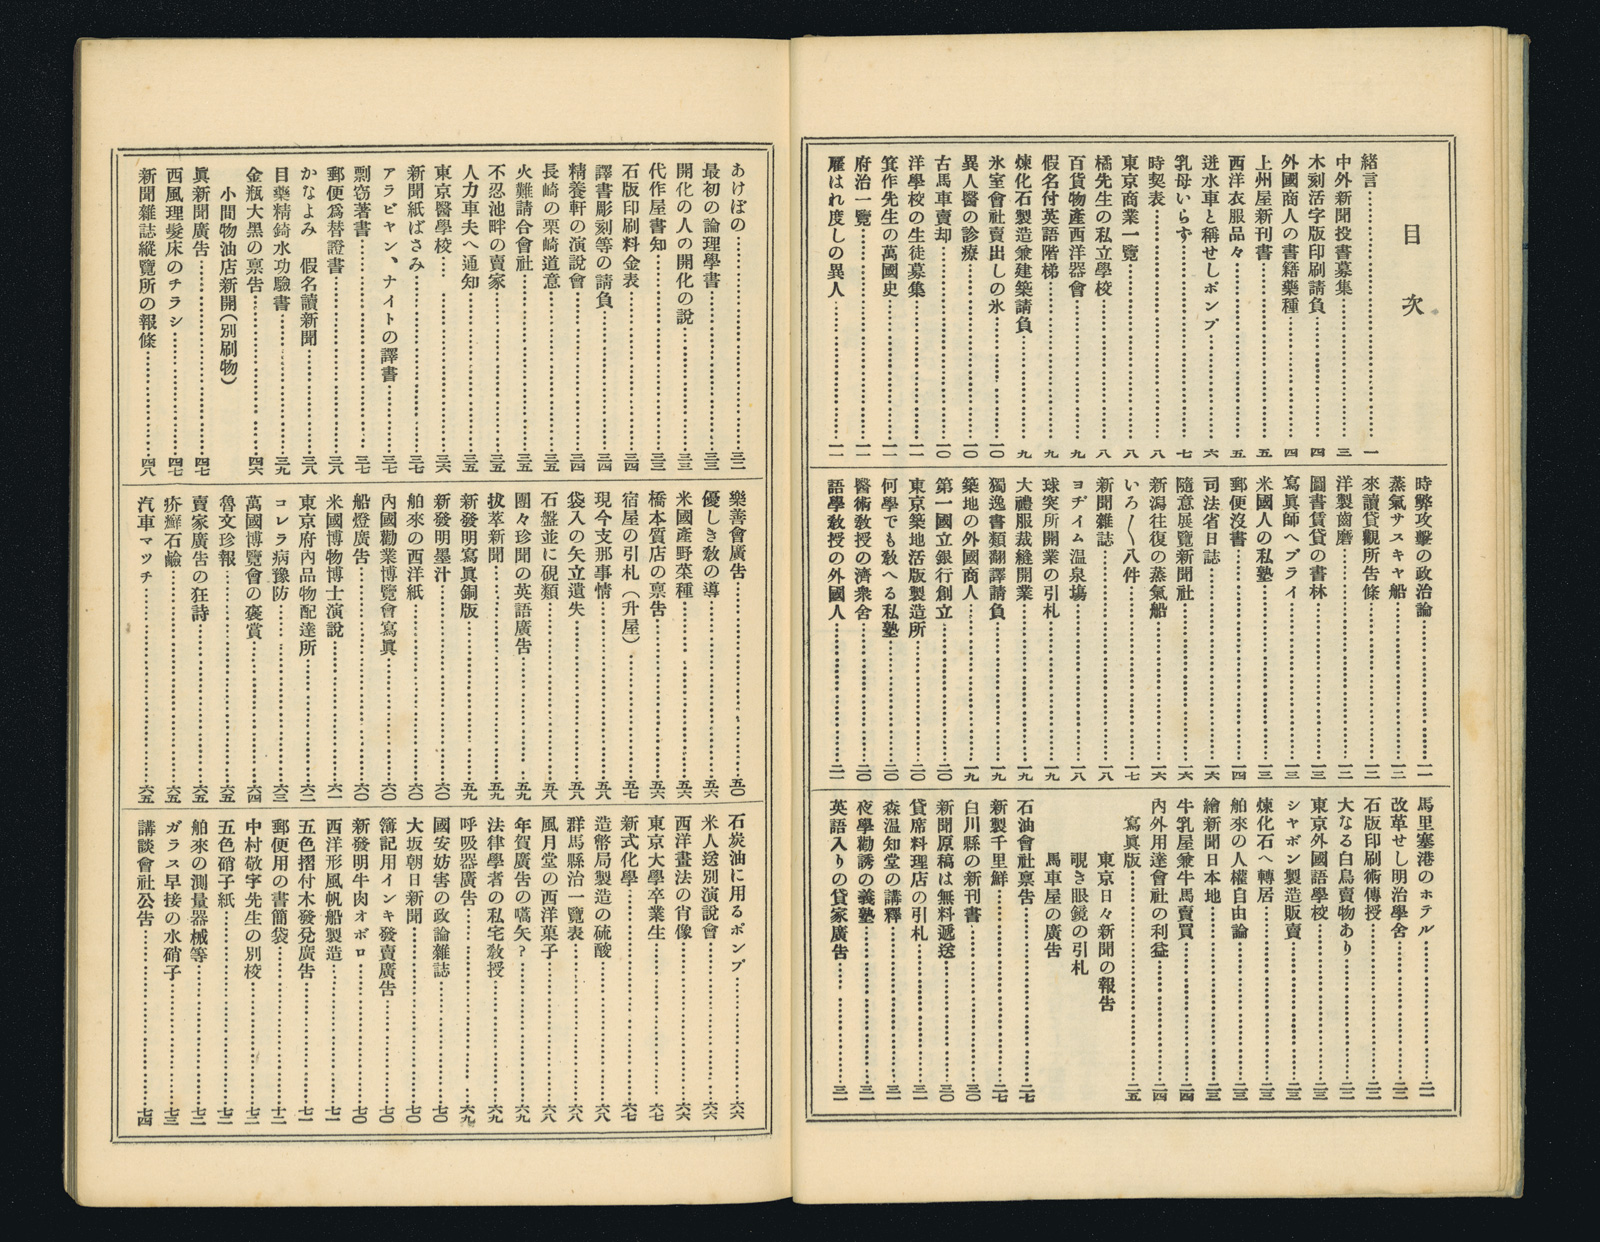 目次
緒言…一
中外新聞投書募集…三
木刻活字版印刷請負…四
外國商人の書籍藥種…四
上州屋新刊書…五
西洋衣服品々…五
迸水車と稱せしポンプ…六
乳母いらず…七
時契表…八
東京商業一覽…八
橘先生の私立學校…八
百貨物產西洋器會…九
假名付英語階梯…九
煉化石製造兼建築請負…九
氷室會社賣出しの氷…一〇
異人醫の診療…一〇
古馬車賣却…一〇
洋學校の生徒募集…一一
箕作先生の萬國史…一一
府治一覽…一一
雇はれ度しの異人…一一
時弊攻擊の政治論…一一
蒸氣サスキヤ船…一二
來讀貸觀所告條…一二
洋製齒磨…一二
圖書賃貸の書林…一三
寫眞師ヘブライ…一三
米國人の私塾…一三
郵便沒書…一四
司法省日誌…一六
隨意展覽新聞社…一六
新潟往復の蒸氣船…一六
いろ〳〵八件…一七
新聞雜誌…一八
ヨヂイム温泉塲…一八
球突所開業の引札…一九
大禮服裁縫開業…一九
獨逸書類翻譯請負…一九
築地の外國商人…一九
第一國立銀行創立…二〇
東京築地活版製造所…二〇
何學でも敎へる私塾…二〇
醫術敎授の濟衆舍…二〇
語學敎授の外國人…二一
馬里塞港のホテル…二一
改革せし明治學舍…二一
石版印刷術傳授…二二
大なる白鳥賣物あり…二二
東京外國語學校…二二
シャボン製造販賣…二三
煉化石へ轉居…二三
舶來の人權自由論…二三
繪新聞日本地…二三
牛乳屋兼牛馬賣買…二四
內外用達會社の利益…二四
寫眞版…二五
東京日々新聞の報告
覗き眼鏡の引札
馬車屋の廣告
石油會社禀告…二七
新製千里鮮…二七
白川縣の新刊書…三〇
新聞原稿は無料遞送…三〇
貸席料理店の引札…三一
森温知堂の講釋…三一
夜學勸誘の義塾…三一
英語入りの貸家廣告…三一
あけぼの…三二
最初の論理學書…三三
開化の人の開化の說…三三
代作屋書知…三三
石版印刷料金表…三四
譯書彫刻等の請負…三四
精養軒の演說會…三四
長崎の栗崎道意…三五
火難請合會社…三五
不忍池畔の賣家…三五
人力車夫へ通知…三五
東京醫學校…三六
新聞紙ばさみ…三七
アラビヤン、ナイトの譯書…三七
剽窃著書…三七
郵便爲替證書…三八
かなよみ　假名讀新聞…三八
目藥精錡水功驗書…三九
金瓶大黑の禀告…四六
小間物油店新開（別刷物）
眞新聞廣告…四七
西風理髮床のチラシ…四七
新聞雜誌縱覽所の報條…四八
樂善會廣告…五〇
優しき敎の導…五六
米國產野菜種…五六
橋本質店の禀告…五六
宿屋の引札（升屋）…五七
現今支那事情…五八
袋入の矢立遺失…五八
石盤並に硯類…五八
團々珍聞の英語廣告…五九
拔萃新聞…五九
新發明寫眞銅版…五九
新發明墨汁…六〇
舶來の西洋紙…六〇
內國勸業博覽會寫眞…六〇
船燈廣告…六〇
米國博物博士演說…六一
東京府內品物配達所…六二
コレラ病豫防…六三
萬國博覽會の褒賞…六四
魯文珍報…六五
賣家廣告の狂詩…六五
疥癬石鹼…六五
汽車マッチ…六五
石炭油に用るポンプ…六六
米人送別演說會…六六
西洋畫法の肖像…六六
東京大學卒業生…六七
新式化學…六七
造幣局製造の硫酸…六八
群馬縣治一覽表…六八
風月堂の西洋菓子…六八
年賀廣告の嚆矢？…六九
法律學者の私宅敎授…六九
呼吸器廣告…六九
國安妨害の政論雜誌…七〇
大坂朝日新聞…七〇
簿記用インキ發賣廣告…七〇
新發明牛肉オボロ…七〇
西洋形風帆船製造…七一
五色摺付木發兌廣告…七一
郵便用の書簡袋…七二
中村敬宇先生の別校…七二
五色硝子紙…七二
舶來の測量器械等…七二
ガラス早接の水硝子…七三
講談會社公告…七四